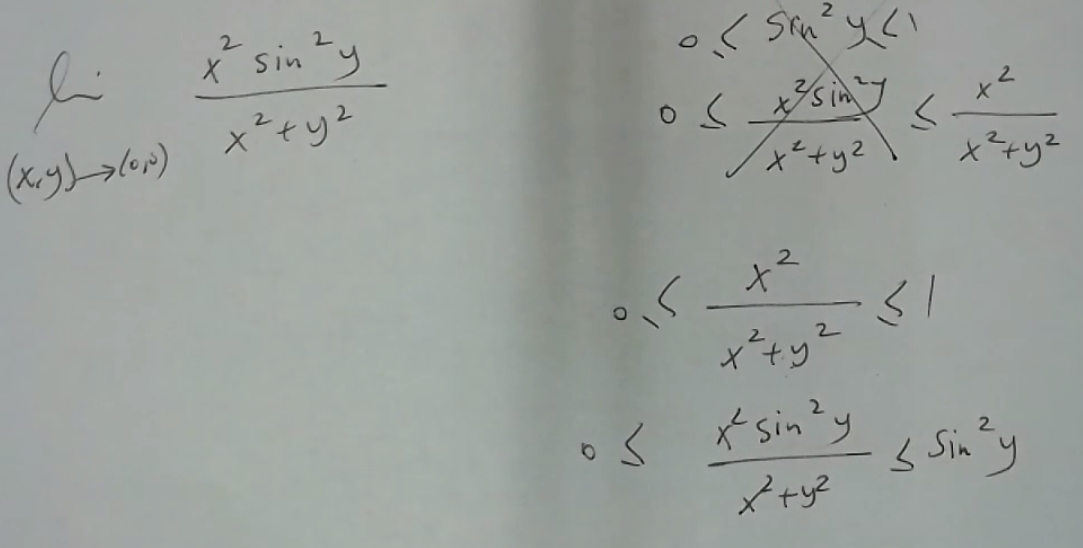 lim x² sin²y / x² + y²
(x,y)→(0,0)
0 ≤ sin²y < 1
0 ≤ x² sin²y / x² + y² ≤ x² / x² + y²
0 ≤ x² / x² + y² ≤ 1
0 ≤ x² sin²y / x² + y² ≤ sin²y